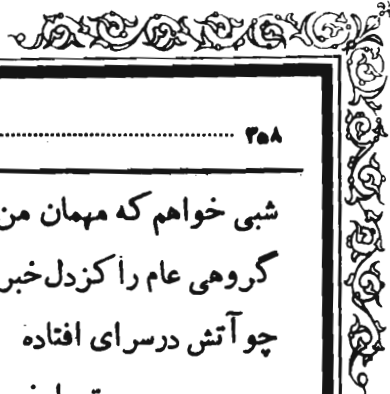 ۳۵۸
شبی خواهم که مهمان من
گروهی عام را کزدل خبر
چو آتش درسرای افتاده